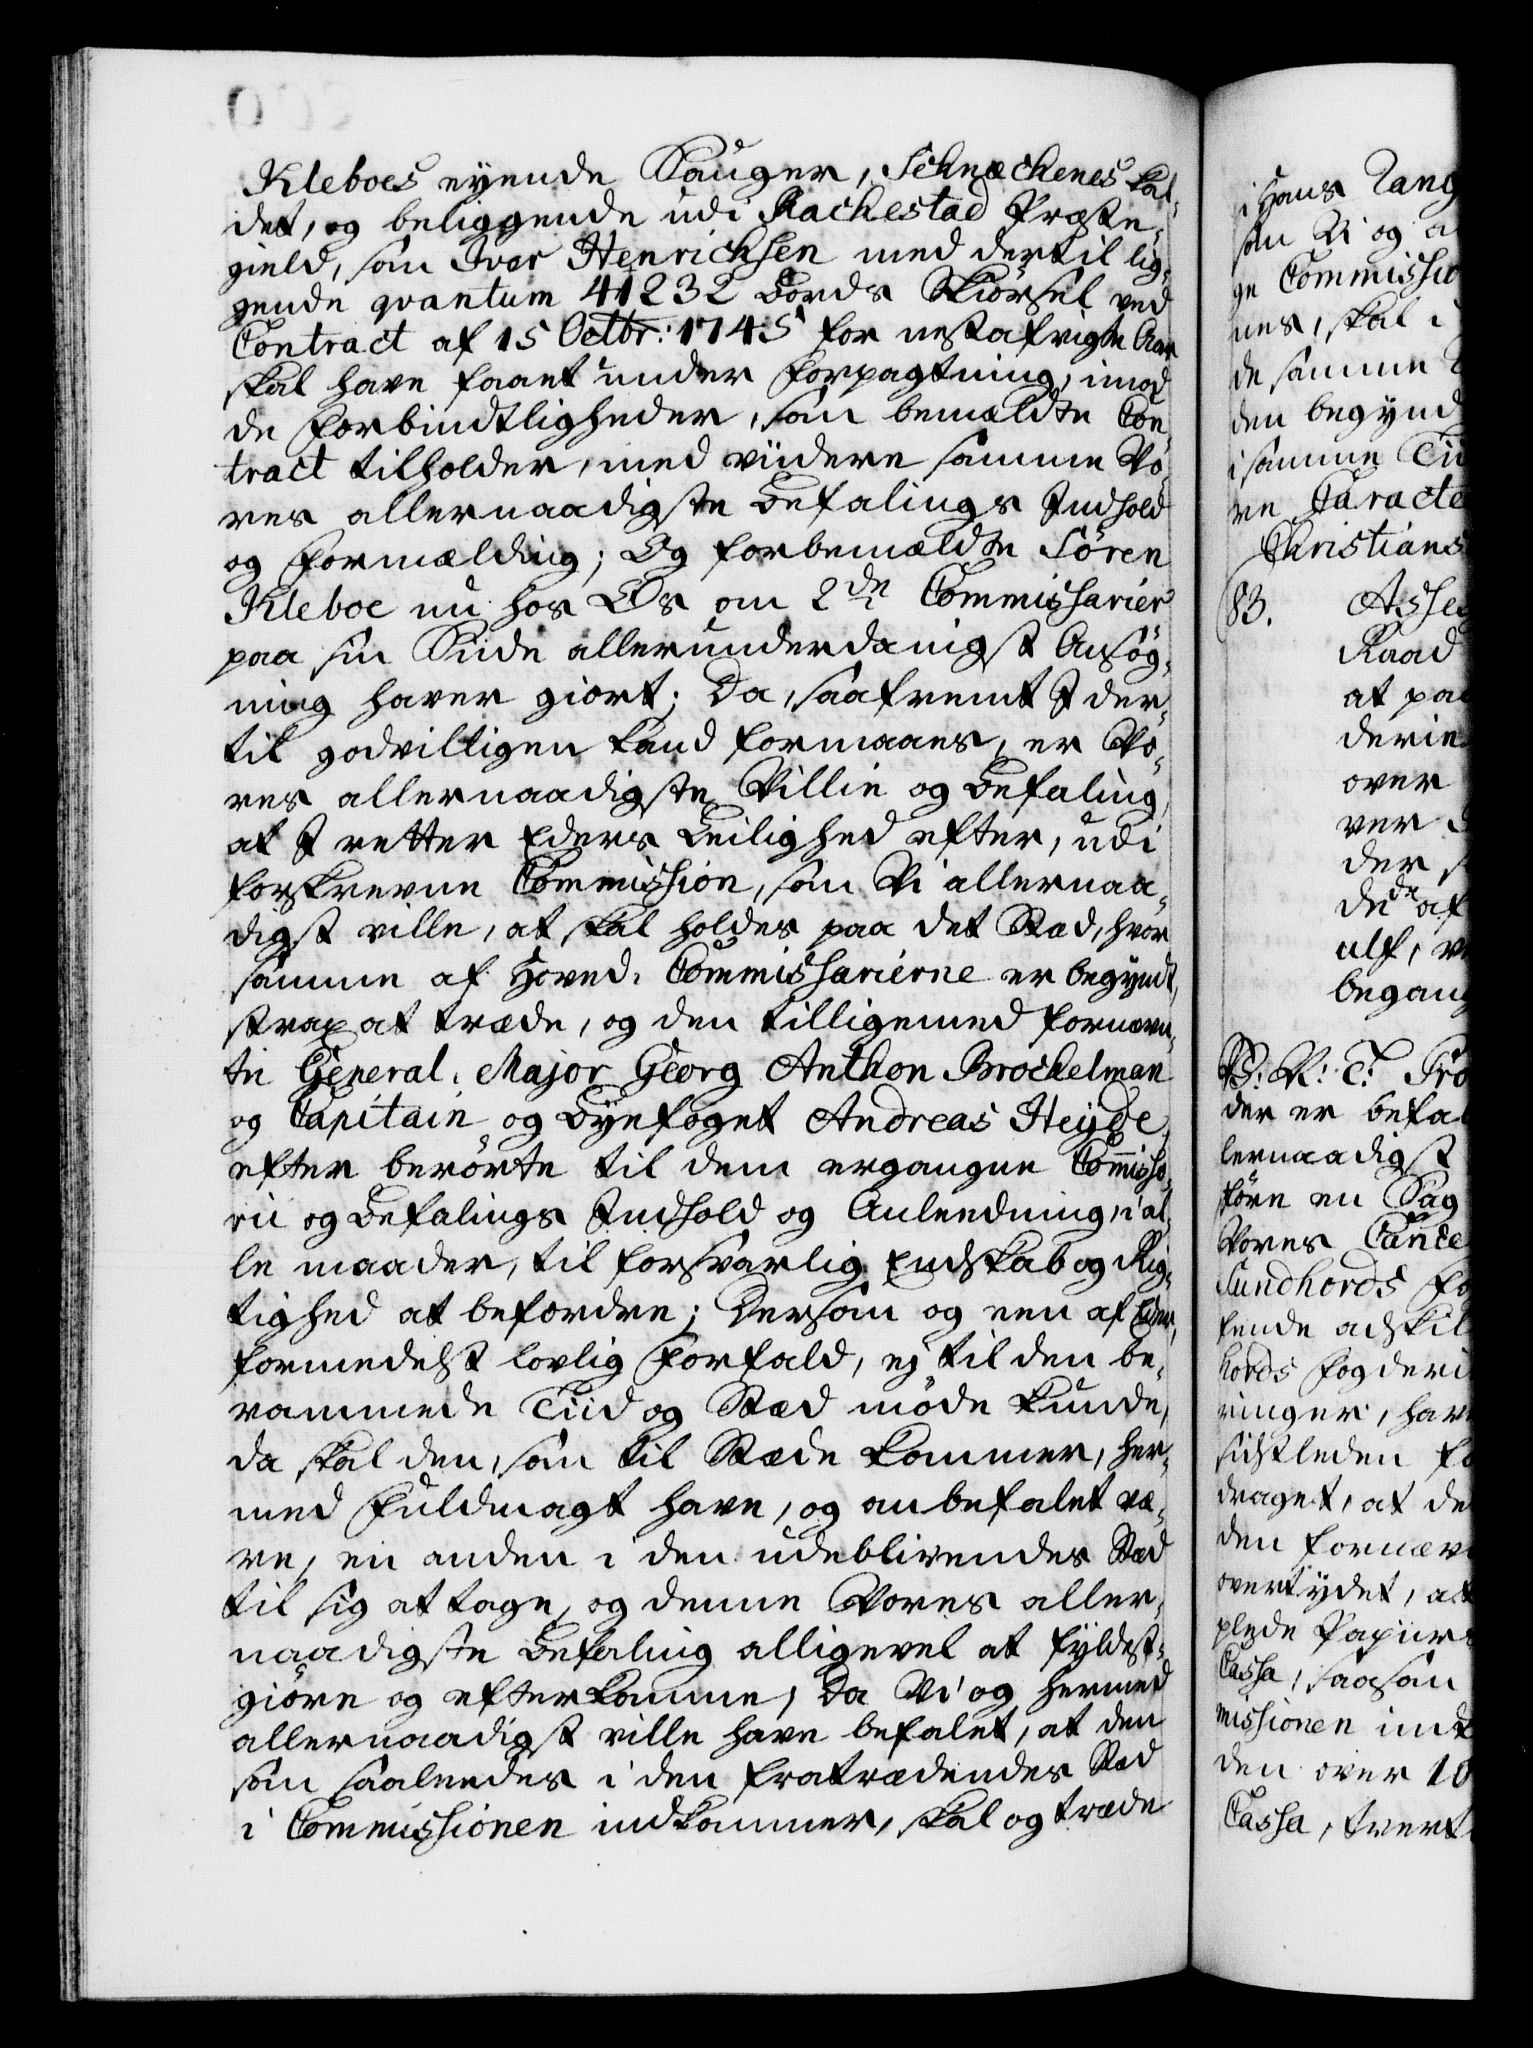 Kleboes eyende Sauger, Schnæchenes kal-
det, og beliggende udi Rachestad Præste-
gield, som Iver Henrichsen med dertil lig-
gende qvantum 41232 Bords Skiørsel ved
Contract af 15 Octbr: 1745 for nestafvigte Aar
skal have faaet under Forpagtning, imod
de Forbindtligheder, som bemældte Con-
tract tilholder, med viidere samme Vo-
res allernaadigste Befalings Indhold
og Formælding; Og forbemældte Sören
Kleboe nu hos Os om 2de Commissarier
paa sin Siide allerunderdanigst Ansøg-
ning haver giort; Da, saafremt I der-
til godvilligen kand formaaes, er Vo-
res allernaadigste Villie og Befaling,
at I retter Eders Leilighed efter, udi
forskrevne Commission, som Vi allernaa-
digst ville, at skal holdes paa det Stæd, hvor
samme af Hoved-Commissarierne er begyndt,
strax at træde, og den tilligemed fornævn-
te General-Major Georg Anthon Brockelman
og Capitain og Byefoget Andreas Heyde,
efter berørte til dem ergangne Commisso-
rii og Befalings Indhold og Anleedning, i al-
le maader, til forsvarlig Endskab og Rig-
tighed at befordre; Dersom og een af Eder,
formedelst lovlig Forfald, ej til den be-
rammede Tiid og Stæd møde kunde,
da skal den, som til Stæde kommer, her-
med Fuldmagt have, og anbefalet væ-
re, en anden i den udeblivendes Stæd
til sig at tage, og denne Vores aller-
naadigste Befaling alligevel at fyldest-
giøre og efterkomme; Da Vi og hermed
allernaadigst ville have befalet, at den
som saaleedes i den fratrædendes Stæd
i Commissionen indkommer, skal og træde
i Hans
som Vi og
ge Commissio
nes, skal i
de samme
den begynd
i samme Tii
re Caracte
Christians
83. Asses
Raad
at paa
derie
over
ver
der
de af
ulf,
begang
der er befal
lernaadigst
føre en Sag
Vores Cance
Sundhords Fo
hords Fogderi
ringer, har
sidstleden
draget, at de
den fornævn
overtydet, at
Cassa, saasom
missionen ind
den over 10
Cassa, tvert